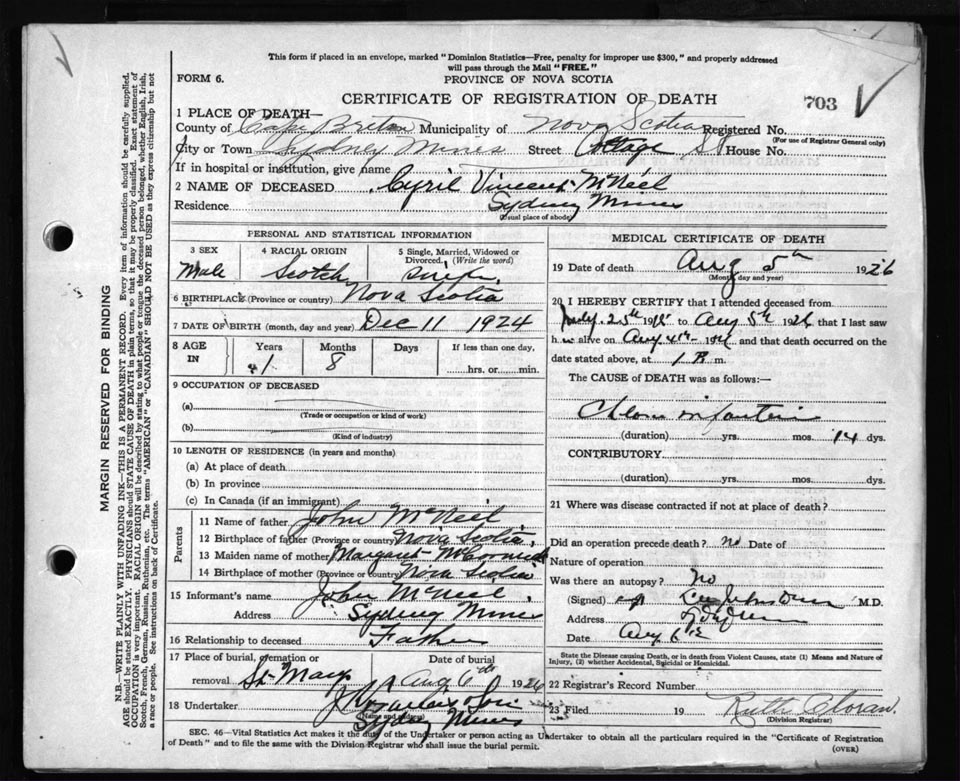 This form if placed in an envelope, marked "Dominion Statistics—Free, penalty for improper use $300," and properly addressed
will pass through the Mail "FREE."
FORM 6.
PROVINCE OF NOVA SCOTIA
CERTIFICATE OF REGISTRATION OF DEATH
703
1 PLACE OF DEATH—
County of Cape Breton Municipality of Nova Scotia Registered No.
(For use of Registrar General only)
City or Town Sydney Mines Street Cottage St House No.
If in hospital or institution, give name
2 NAME OF DECEASED Cyril Vincent McNeil
Residence Sydney Mines
(Usual place of abode)
PERSONAL AND STATISTICAL INFORMATION
3 SEX
Male
4 RACIAL ORIGIN
Scotch
5 Single, Married, Widowed or
Divorced. (Write the word)
Single
6 BIRTHPLACE (Province or country) Nova Scotia
7 DATE OF BIRTH (month, day and year) Dec 11 1924
8 AGE
IN
Years
1
Months
8
Days
If less than one day,
hrs. or min.
9 OCCUPATION OF DECEASED
(a)
(Trade or occupation or kind of work)
(b)
(Kind of industry)
10 LENGTH OF RESIDENCE (in years and months)
(a) At place of death
(b) In province
(c) In Canada (if an immigrant)
Parents
11 Name of father John McNeil
12 Birthplace of father (Province or country) Nova Scotia
13 Maiden name of mother Margaret McCormick
14 Birthplace of mother (Province or country) Nova Scotia
15 Informant's name John McNeil
Address Sydney Mines
16 Relationship to deceased Father
17 Place of burial, cremation or
removal St. Marys
Date of burial
Aug 6th 1926
18 Undertaker
(Name and address)
Sydney Mines
MEDICAL CERTIFICATE OF DEATH
19 Date of death Aug 5th 1926
(Month, day and year)
20 I HEREBY CERTIFY that I attended deceased from
July 25th 19 to Aug 5th 1926 that I last saw
h alive on Aug 4th 19 and that death occurred on the
date stated above, at 1 P. m.
The CAUSE of DEATH was as follows:—
infantum
(duration) yrs. mos. 14 dys.
CONTRIBUTORY
(duration) yrs. mos. dys.
21 Where was disease contracted if not at place of death?
Did an operation precede death? No Date of
Nature of operation
Was there an autopsy? No
(Signed) M.D.
Address
Date Aug 6
State the Disease causing Death, or in death from Violent Causes, state (1) Means and Nature of
Injury, (2) whether Accidental, Suicidal or Homicidal.
22 Registrar's Record Number
23 Filed 19 Ruth Cloran.
(Division Registrar)
SEC. 46—Vital Statistics Act makes it the duty of the Undertaker or person acting as Undertaker to obtain all the particulars required in the "Certificate of Registration
of Death" and to file the same with the Division Registrar who shall issue the burial permit.
(OVER)
MARGIN RESERVED FOR BINDING
N.B.—WRITE PLAINLY WITH UNFADING INK—THIS IS A PERMANENT RECORD. Every item of information should be carefully supplied.
AGE should be stated EXACTLY. PHYSICIANS should STATE CAUSE OF DEATH in plain terms, so that it may be properly classified. Exact statement of
OCCUPATION is very important. RACIAL ORIGIN will be described by stating to what people or tongue the deceased person belonged, whether English, Irish,
Scotch, French, German, Russian, Ruthenian, etc. The terms "AMERICAN" or "CANADIAN" SHOULD NOT BE USED as they express citizenship but not
a race or people. See instructions on back of Certificate.